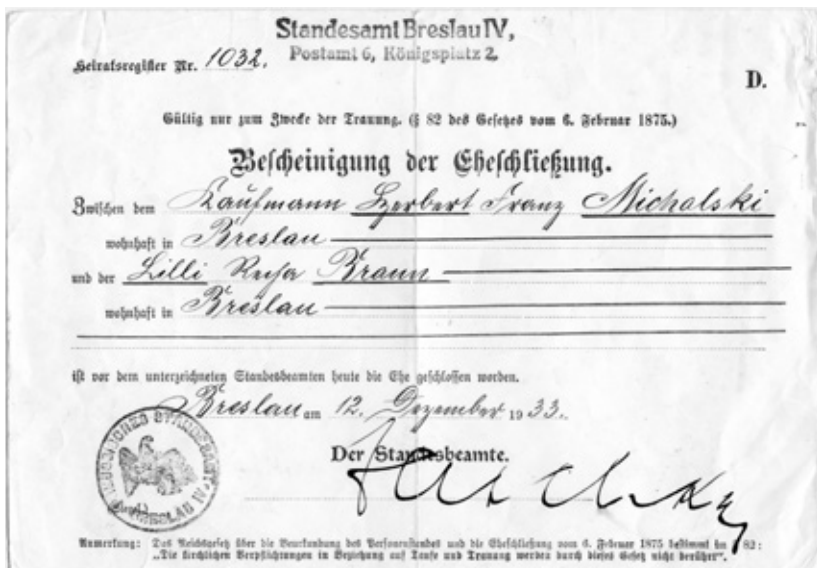 Standesamt Breslau IV,
Postamt 6, Königsplatz 2.
Heiratsregister Nr. 1032.
D.
Gültig nur zum Zwecke der Trauung. (§ 82 des Gesetzes vom 6. Februar 1875.)
Bescheinigung der Eheschließung.
Zwischen dem Kaufmann Herbert Franz Michalski
wohnhaft in Breslau
und der Lilli Recha Braun
wohnhaft in Breslau
ist vor dem unterzeichneten Standesbeamten heute die Ehe geschlossen worden.
Breslau am 12. Dezember 1933.
Der Standesbeamte.
STANDESAMT BRESLAU IV
Anmerkung: Das Reichsgesetz über die Beurkundung des Personenstandes und die Eheschließung vom 6. Februar 1875 bestimmt im § 82:
„Die kirchlichen Verpflichtungen in Beziehung auf Taufe und Trauung werden durch dieses Gesetz nicht berührt".